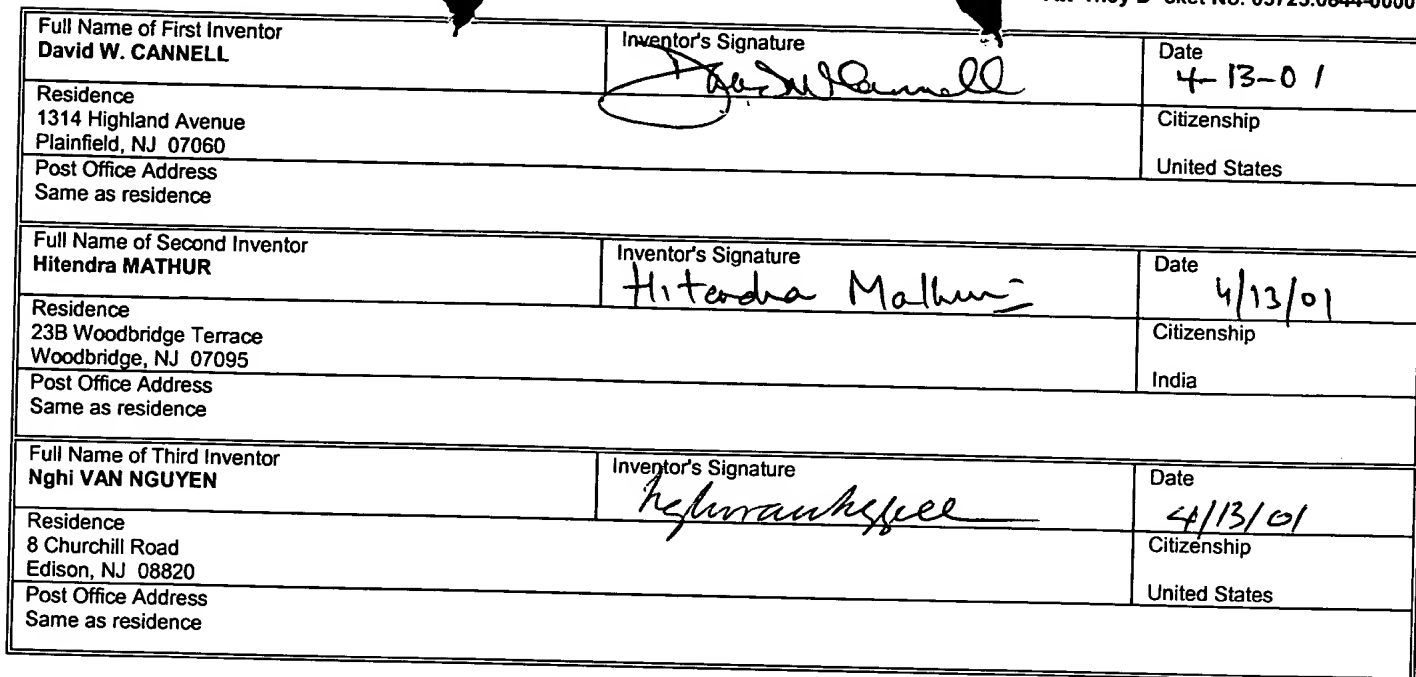 sket No. 05725.0844-0000
Full Name of First Inventor
David W. CANNELL
Inventor's Signature
David W Cannell
Date
4-13-01
Residence
1314 Highland Avenue
Plainfield, NJ 07060
Citizenship
United States
Post Office Address
Same as residence
Full Name of Second Inventor
Hitendra MATHUR
Inventor's Signature
Hitendra Mathur
Date
4/13/01
Residence
23B Woodbridge Terrace
Woodbridge, NJ 07095
Citizenship
India
Post Office Address
Same as residence
Full Name of Third Inventor
Nghi VAN NGUYEN
Inventor's Signature
Date
4/13/01
Residence
8 Churchill Road
Edison, NJ 08820
Citizenship
United States
Post Office Address
Same as residence